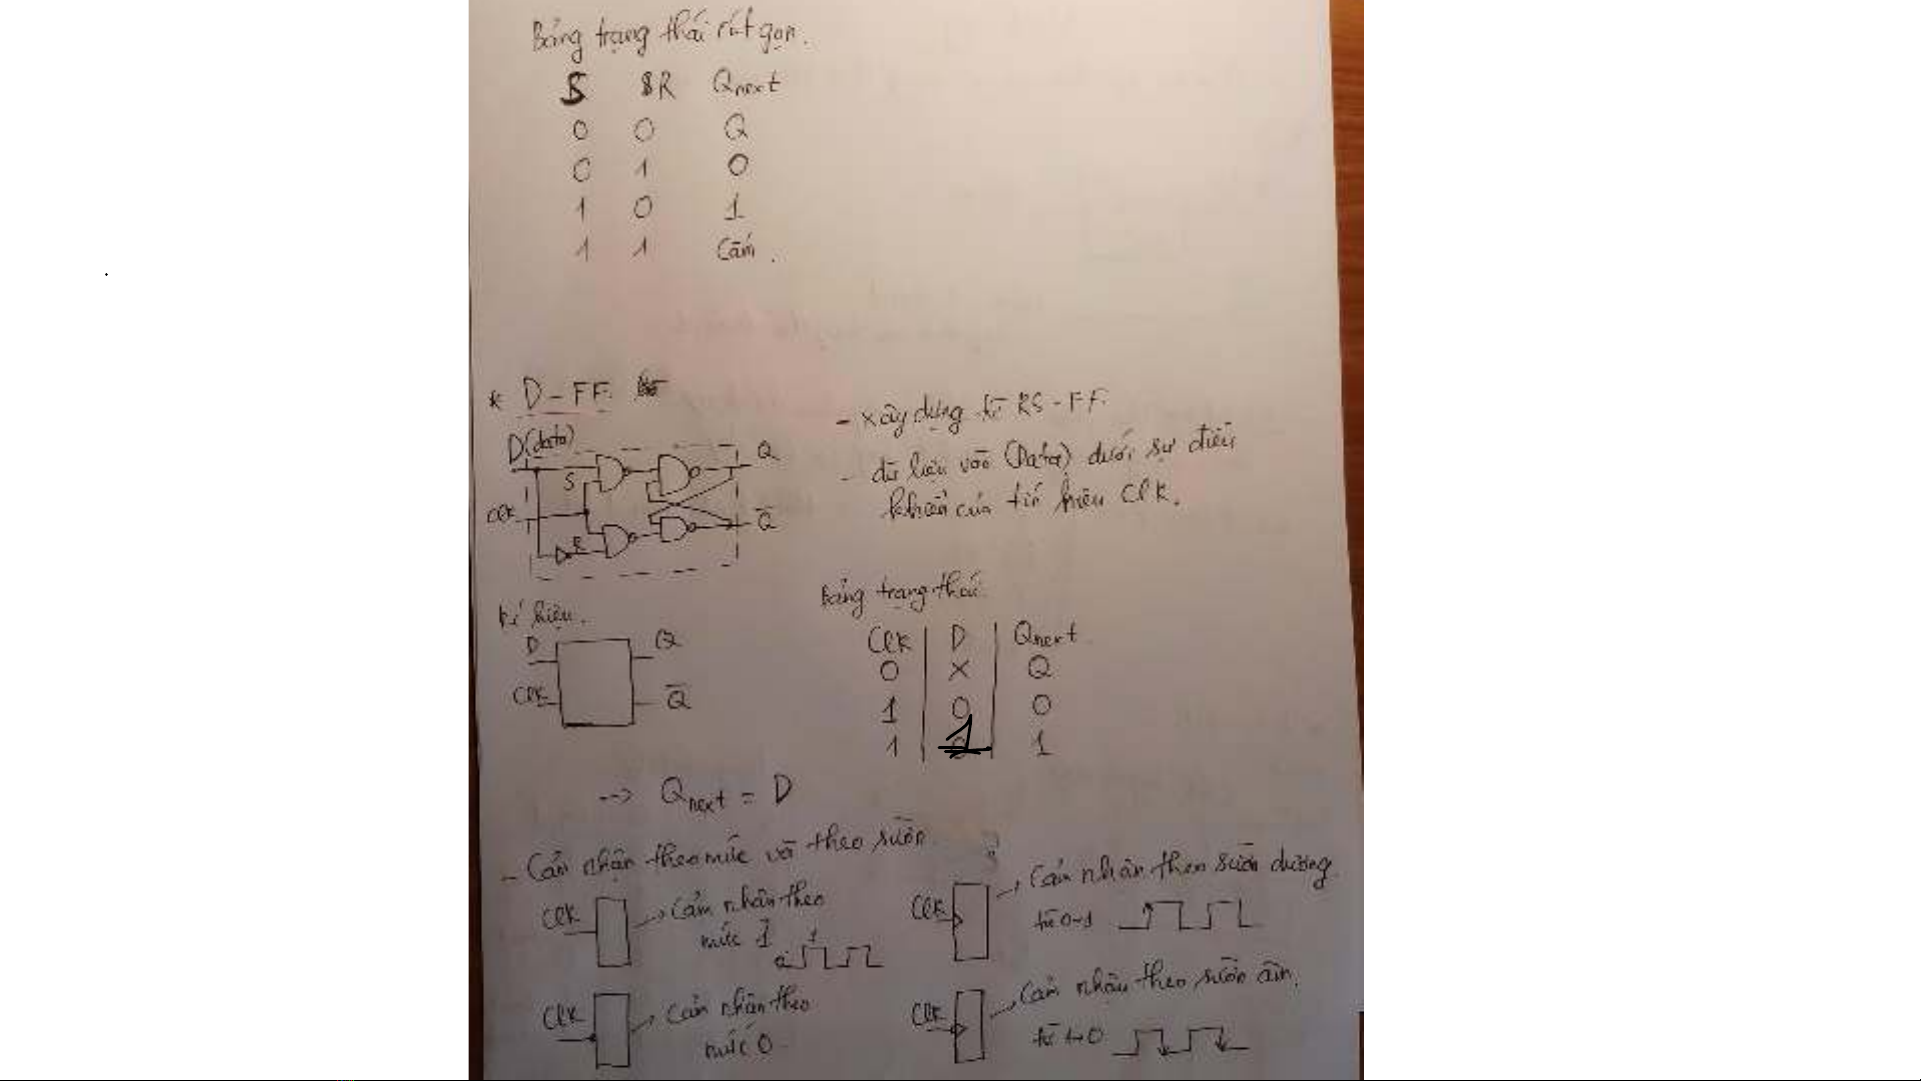 Bảng trạng thái rút gọn.
S R Qnext
0 0 Q
0 1 0
1 0 1
1 1 Cấm.
* D-FF.
D(data)
S
Q
Clk
R
Q̅
- xây dựng từ RS-FF.
- dữ liệu vào (Data) dưới sự điều
khiển của tín hiệu Clk.
Kí hiệu.
D Q
Clk Q̅
Bảng trạng thái
Clk D Qnext
0 X Q
1 0 0
1 1 1
--> Qnext = D
- Cảm nhận theo mức và theo sườn
Clk Cảm nhận theo
mức 1
0 1
Clk Cảm nhận theo sườn dương
từ 0→1
Clk Cảm nhận theo
mức 0
Clk Cảm nhận theo sườn âm.
từ 1→0